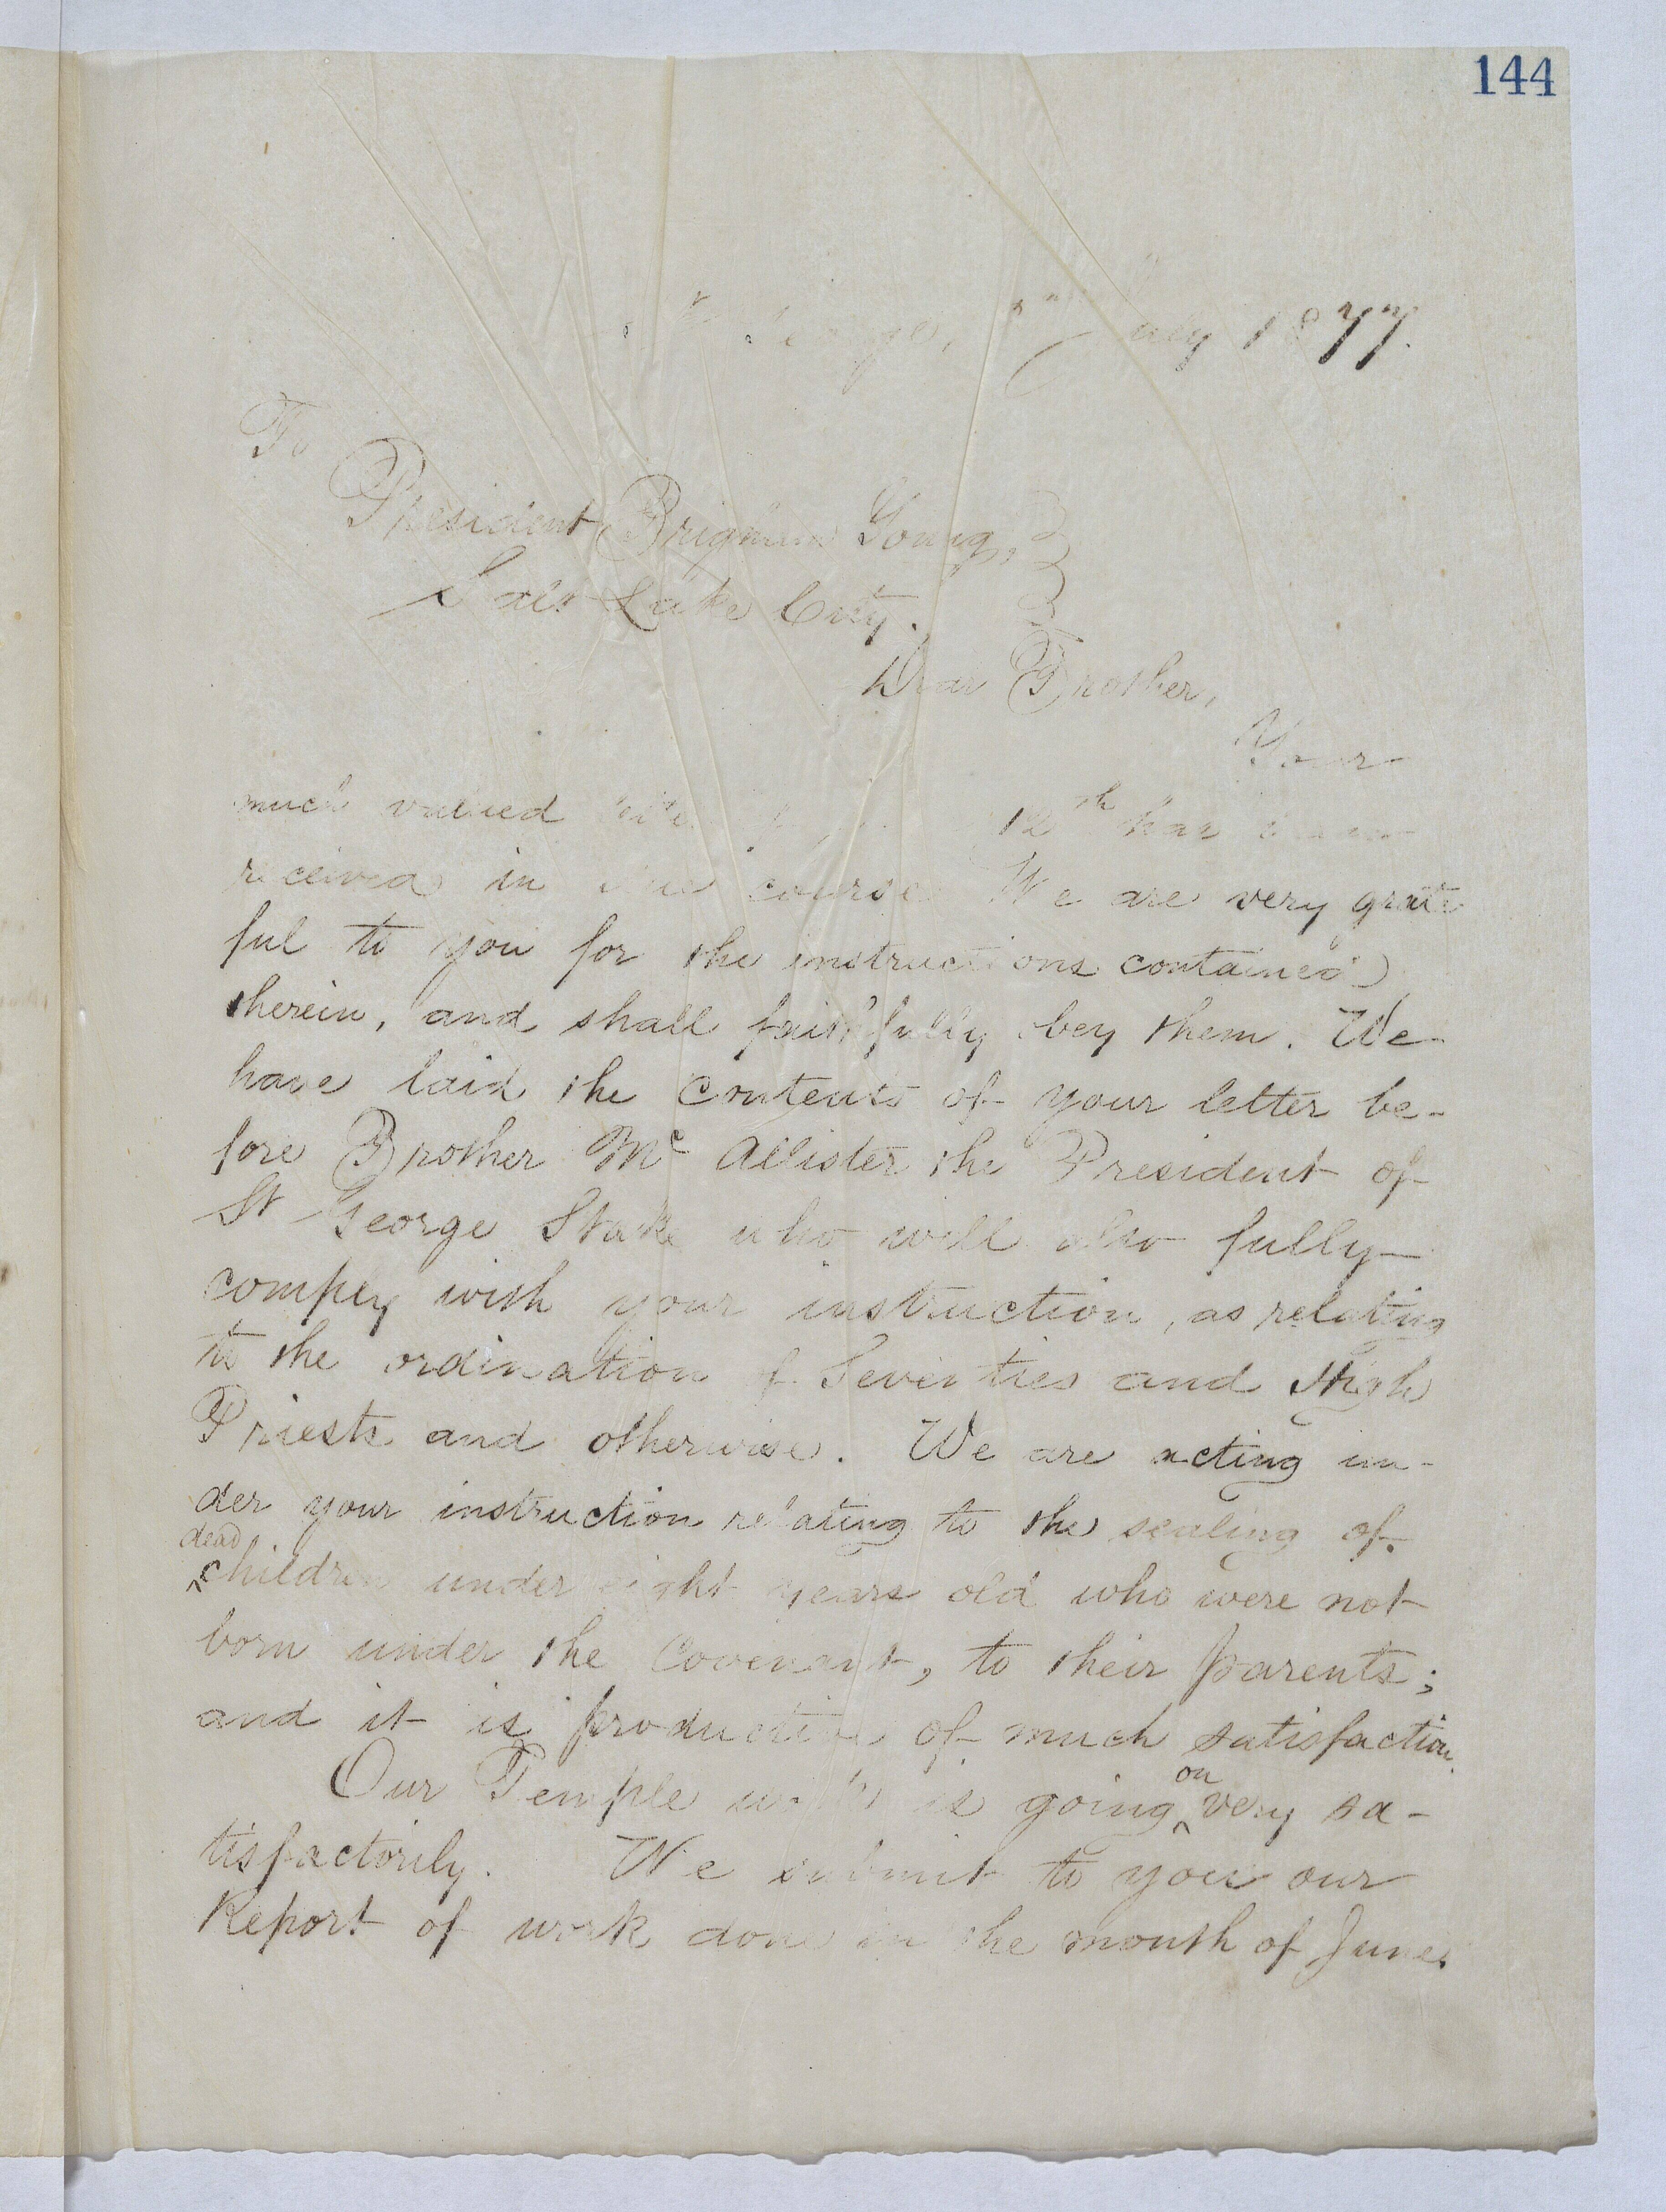 144
St George, July 1877.
To
President Brigham Young,
Salt Lake City.
Dear Brother,
Your
much valued letter 12th has been
received in due course We are very grate
ful to you for the instructions contained
therein, and shall faithfully obey them. We
have laid the contents of your letter be-
fore Brother Mc Allister the President of
St George Stake who will also fully
comply with your instruction, as relating
to the ordination of Seventies and High
Priests and otherwise. We are acting un-
der your instruction relating to the sealing of
dead
^children under eight years old who were not
born under the Covenant, to their parents;
and it is productive of much satisfaction.
Our Temple work is going ^on very sa-
tisfactorily. We submit to you our
Report of work done in the month of June.